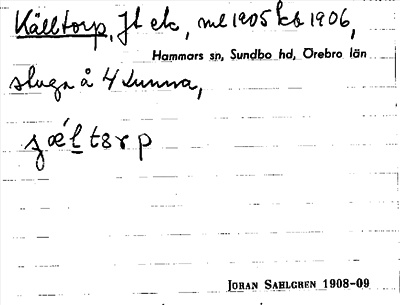 Källtorp, Jl ek, ml 1905 kb 1906,
Hammars sn, Sundbo hd, Örebro län
stuga å 4 Sunna,
ɟæ´ltsr p
JORAN SAHLGREN 1908-09